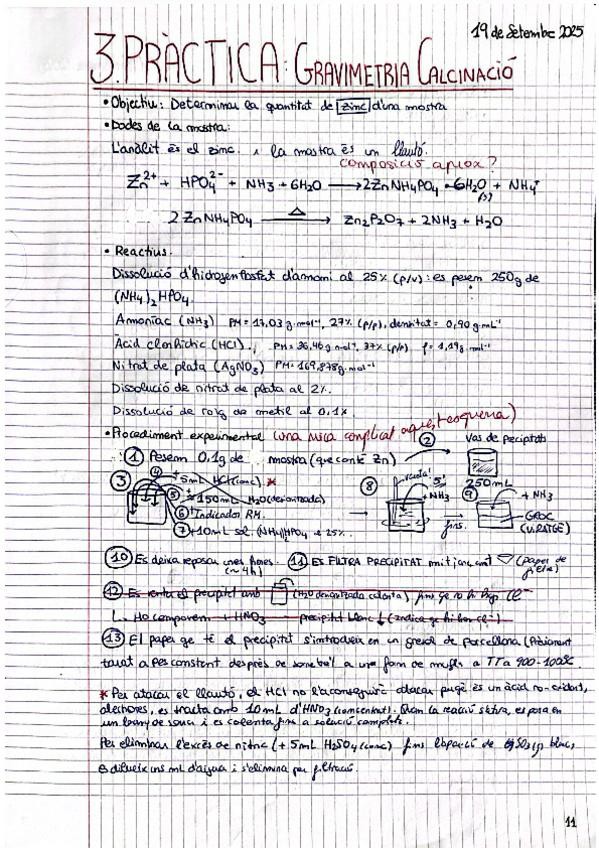 19 de Setembre 2025
3. PRÀCTICA: GRAVIMETRIA CALCINACIÓ
• Objectiu: Determinar la quantitat de zinc d'una mostra
• Dades de la mostra:
L'anàlit és el zinc. i la mostra és un llautó.
composició aprox?
Zn²⁺ + HPO₄²⁻ + NH₃ + 6H₂O → 2ZnNH₄PO₄ · 6H₂O (s) + NH₄⁺
2 ZnNH₄PO₄ —Δ→ Zn₂P₂O₇ + 2NH₃ + H₂O
• Reactius.
Dissolució d'hidrogenfosfat d'amoni al 25% (p/v): es pesem 250g de
(NH₄)₂HPO₄.
Amoníac (NH₃) PM = 17,03 g·mol⁻¹, 27% (p/p), densitat = 0,90 g·mL⁻¹
Àcid clorhídric (HCl). PM = 36,46 g·mol⁻¹, 37% (p/p) ρ = 1,19 g·ml⁻¹
Nitrat de plata (AgNO₃) PM = 169,878 g·mol⁻¹
Dissolució de nitrat de plata al 2%.
Dissolució de roig de metil al 0,1%.
• Procediment experimental (una mica complicat aquest esquema)
① Pesem 0,1g de mostra (que conté Zn)
② Vas de precipitats
250mL
③
④ + 5mL HCl (conc) *
⑤ ≈ 150mL H₂O (desionitzada)
⑥ Indicador RM.
⑦ + 10mL sol. (NH₄)₂HPO₄ 25%.
⑧
+ NH₃
fins.
⑨ + NH₃
GROC
(VIRATGE)
⑩ Es deixa reposar unes hores.
(~4h)
⑪ ES FILTRA PRECIPITAT mitjançant (paper de
filtre)
⑫ Es renta el precipitat amb (H₂O desionitzada calenta) fins
Ho comprovem + HNO₃ precipitat blanc
⑬ El paper que té el precipitat s'introdueix en un gresol de porcellana (Prèviament
tarat a Pes constant després de a un forn de mufla a TTa 900-1000ºC
* Per atacar el llautó, el HCl no l'aconseguirà atacar pugè és un àcid no-oxidant,
aleshores, es tracta amb 10mL d'HNO₃ (concentrat). Quan la reacció s'atura, es posa en
un bany de sorra i es calenta fins a solució completa.
Per eliminar l'excés de nítric (+ 5mL H₂SO₄ (conc) fins l'aparició de blanc,
es dilueix uns mL d'aigua i s'elimina per filtració.
11